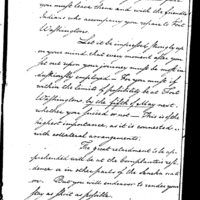 you must leave them and with the friendly
Indians who accompany you repair to Fort
Washington.
Let it be impressed firmly up
on your mind, that every moment after you
set out upon your journey must be most in-
dustriously employed — For you must if
within the limits of possibility be at Fort
Washington, by the fifth of May next,
whether you succeed or not — This is of the
highest importance, as it is connected
with collateral arrangements.
The great retardment to be ap-
prehended will be at the Complanters resi-
dence or in other parts of the Seneka nati-
on. But you will endeavor to render your
stay as short as possible.